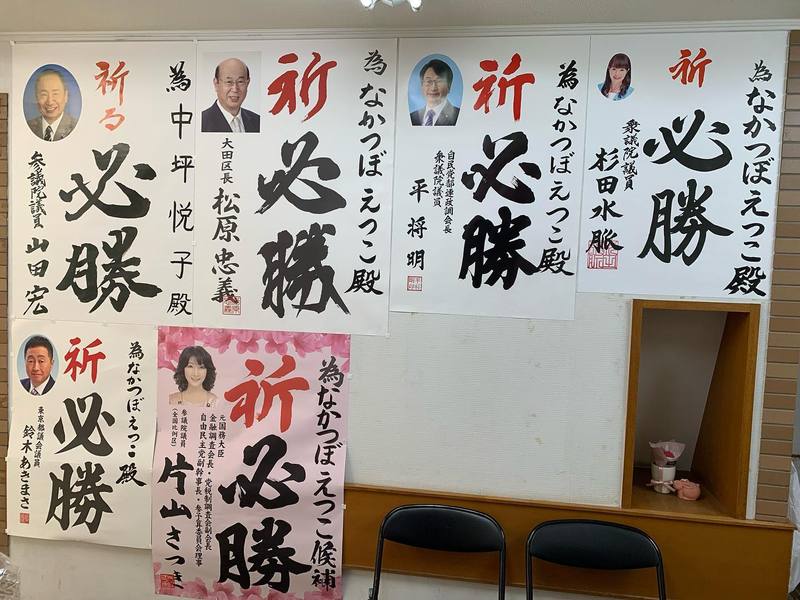 為なかつぼえつこ殿
祈
必勝
衆議院議員
杉田水脈
為なかつぼえつこ殿
祈
必勝
自民党都連政調会長
衆議院議員
平将明
為なかつぼえつこ殿
祈
必勝
大田区長
松原忠義
為中坪悦子殿
祈る
必勝
参議院議員
山田宏
為なかつぼえつこ候補
祈
必勝
元国務大臣
金融調査会長・党税制調査会副会長
自由民主党副幹事長・参予算委員会理事
参議院議員
(全国比例区)
片山さつき
為なかつぼえつこ殿
祈
必勝
東京都議会議員
鈴木あきまさ